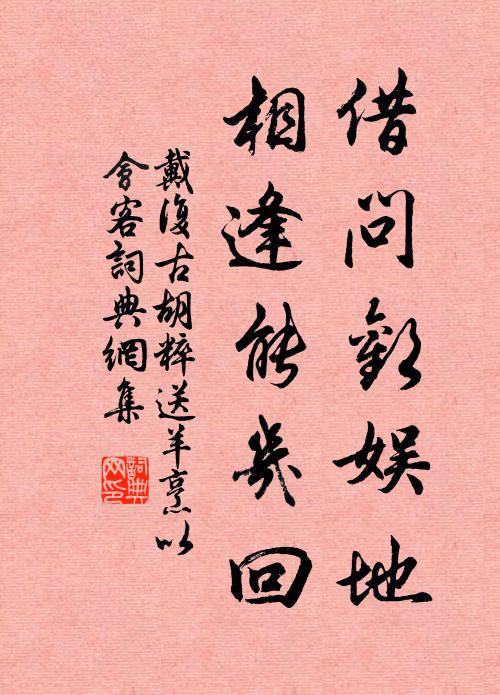 借问歡娱地
相逢能幾回
戴復古胡粹送羊烹以
會客詞典網集
詞典网印